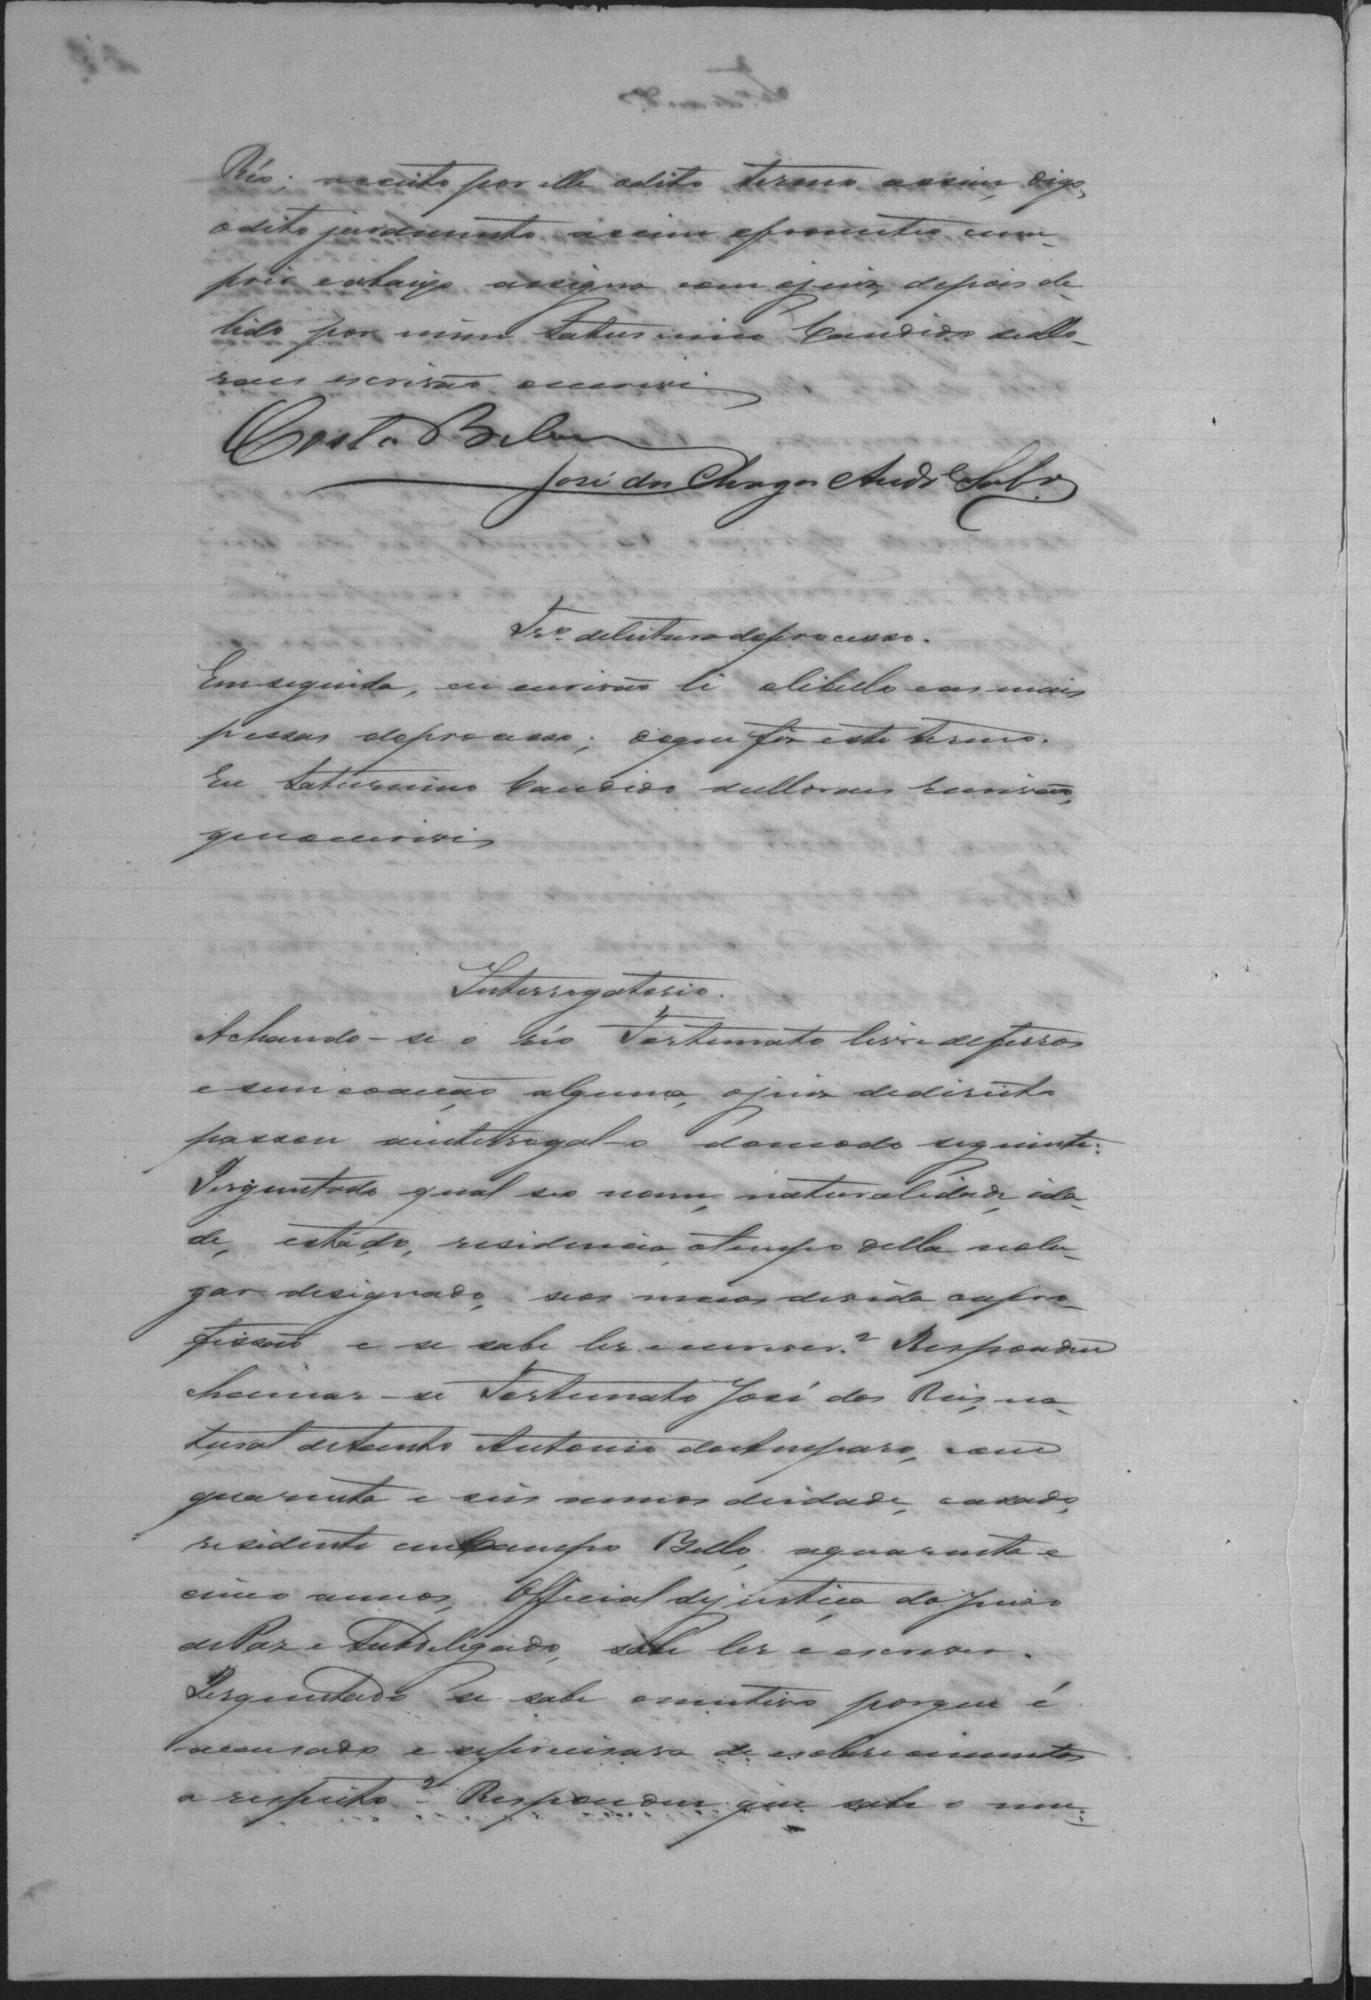 Réo; acceito por elle odito termo assim, digo,
odito juramento assim eprometteo cum-
prir eabaixo assigna com ojuiz, depois de
lido por mim Saturnino Candido deMo-
raes escrivão oescrevi
Costa
José das Chagas Andre
Tr.º deleitura doprocesso.
Emseguida, eu escrivão li olibello eas mais
pessas doprocesso; doque fiz este termo.
Eu Saturnino Candido deMoraes Escrivão,
queoescrevi
Interrogatorio.
Achando-se o réo Fortunato livre deferros
e sem coacção alguma, ojuiz dedireito
passou ainterrogal-o domodo seguinte:
Perguntado qual seo nome, naturalidade, ida-
de, estado, residencia, otempo della nolu-
gar designado, seos meios devida eapro-
fissão e se sabe ler e escrever? Respondeu
chamar-se Fortunato José dos Reis, na-
tural deSanto Antonio doAmparo, com
quarenta e seis annos deidade, casado,
residente emCampo Bello, aquarenta e
cinco annos, Official dejustiça do Juizo
dePaz e Subdelegado, sabe ler e escrever.
Perguntado se sabe omotivo porque é
accusado e seprecisava de esclarecimentos
a respeito? Respondeu que sabe o mo-